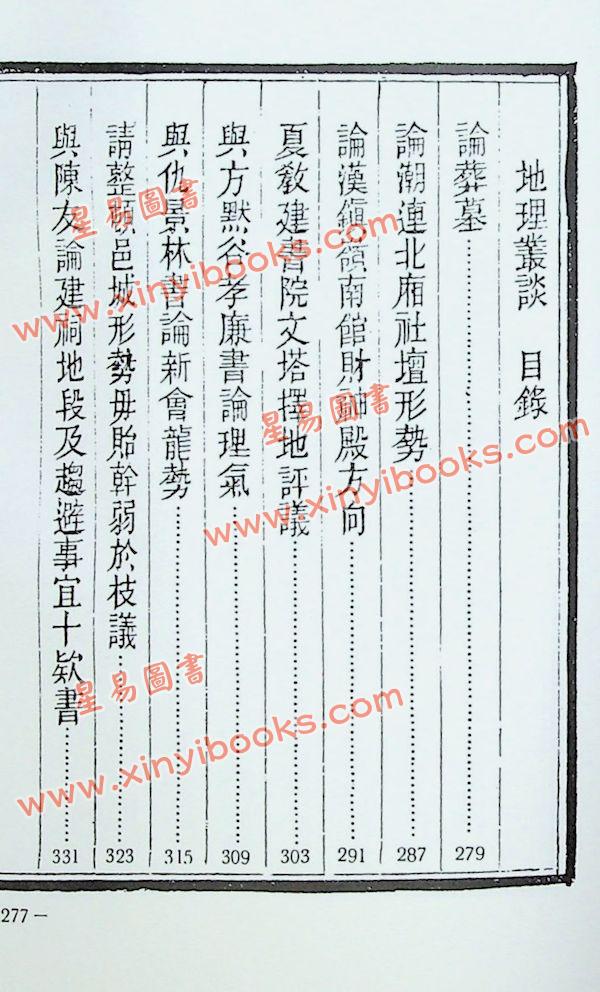 地理叢談　目錄
論葬墓 279
論潮連北廂社壇形勢 287
論漢鎮嶺南館財神殿方向 291
夏教建書院文塔擇地評議 303
與方默谷孝廉書論理氣 309
與仇景林書論新會龍勢 315
請整頓邑城形勢毋貽幹弱於枝議 323
與陳友論建祠地段及趨避事宜十欵書 331
277－
星易圖書
www.xinyibooks.com
星易圖書
www.xinyibooks.com
星易圖書
www.xinyibooks.com